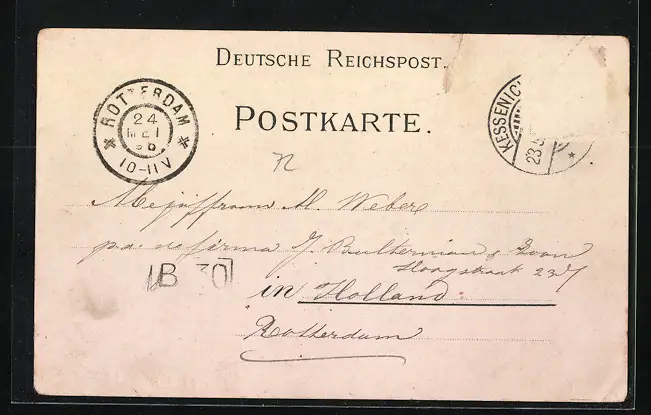 DEUTSCHE REICHSPOST.
POSTKARTE.
* ROTTERDAM *
24
MEI
98
10-11V
KESSENI
23.5
Mejuffrouw M. Weber
p.a. de firma J. Bulterman & Zoon
Hoogstraat 237
B 30
in Holland.
Rotterdam